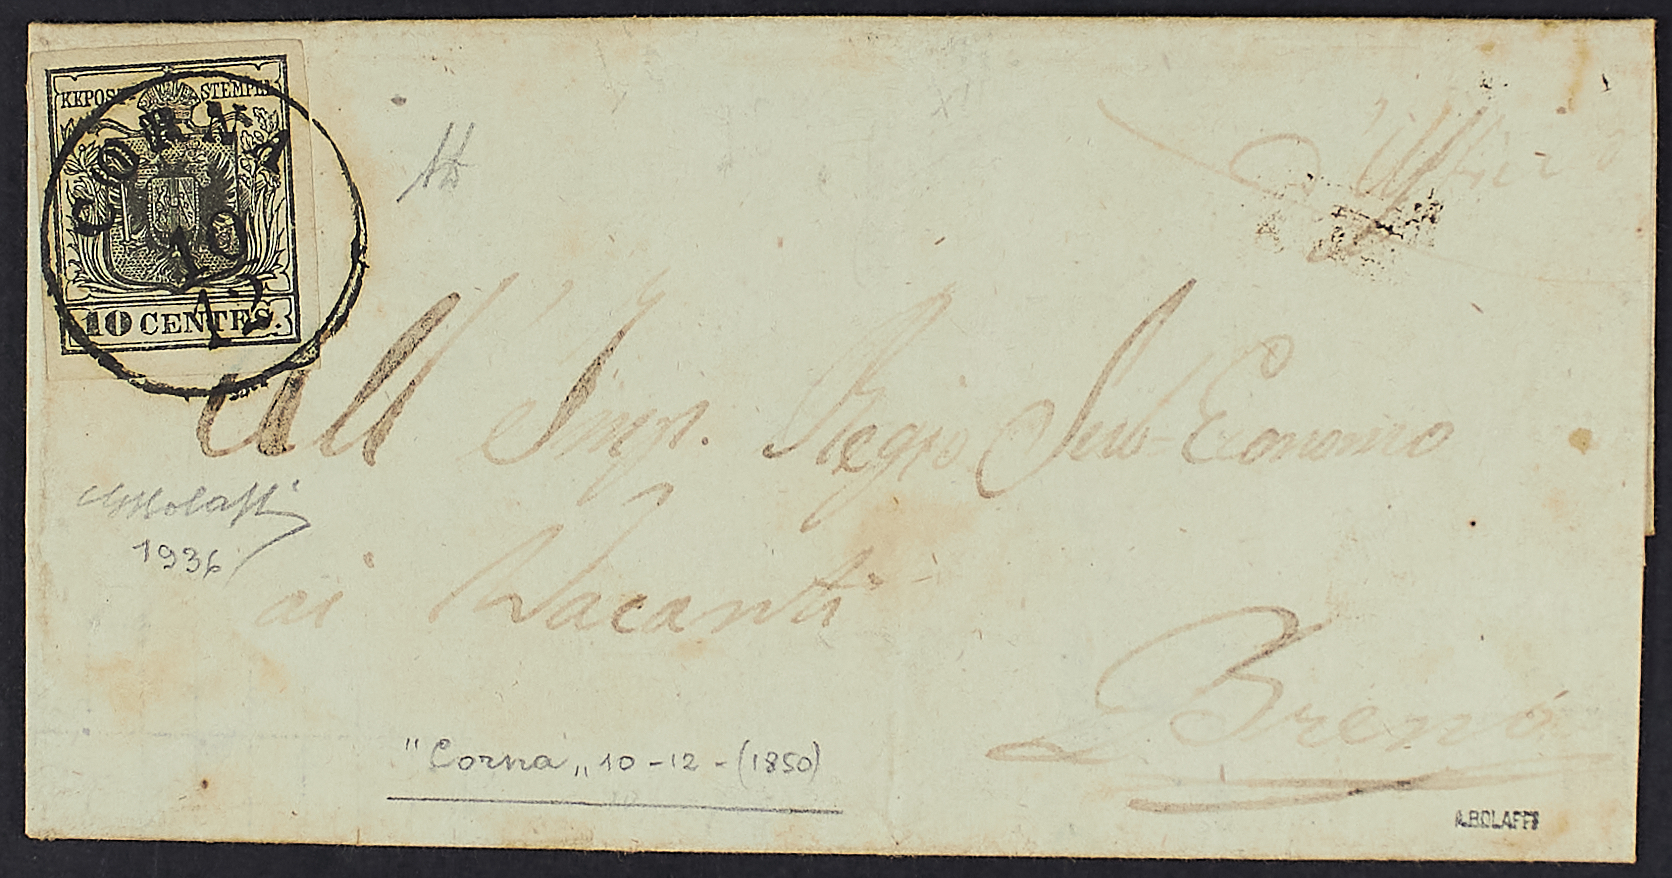 KKPOST-STEMPEL
CORNA
10
12
10 CENTES.
d'Ufficio
All' Imp. Regio Sub-Economo
ai Vacanti
Breno
1936
"Corna„ 10-12-(1850)
A.BOLAFFI